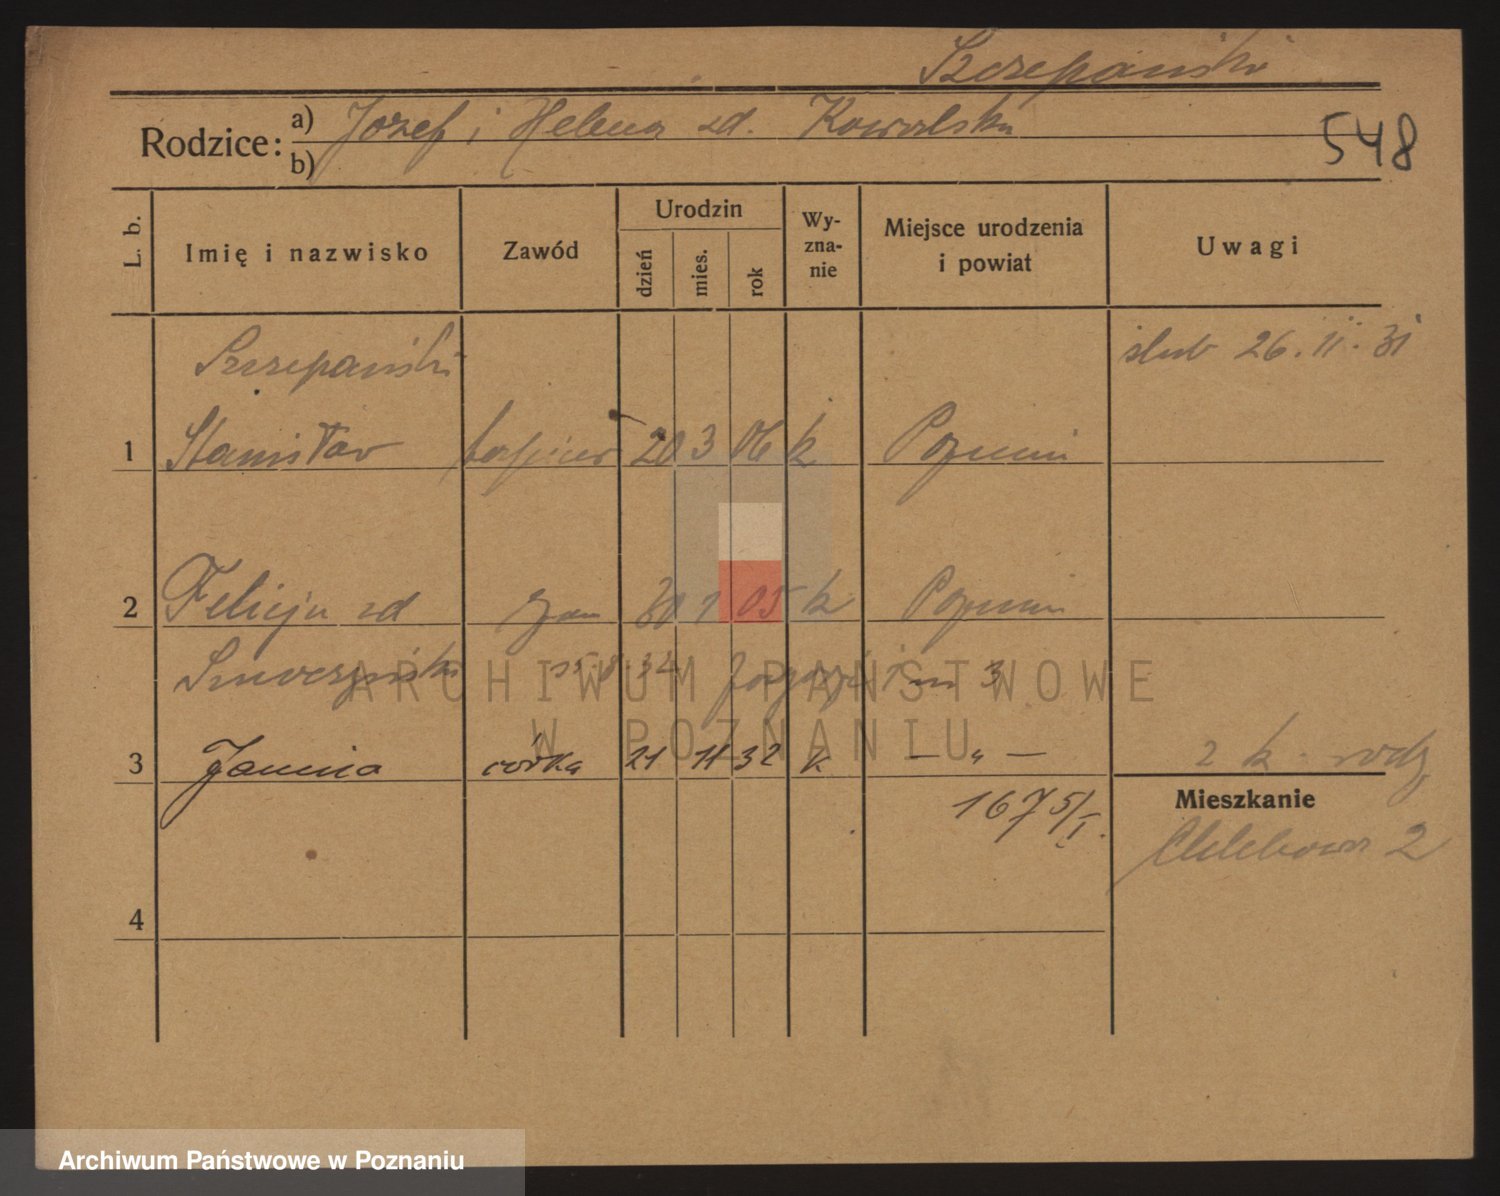 Szczepański
Rodzice: a) Jozef i Helena zd. Kowalska
b)
548
L. b.
Imię i nazwisko
Zawód
Urodzin
dzień
mies.
rok
Wy-
zna-
nie
Miejsce urodzenia
i powiat
Uwagi
Szczepański
ślub 26. II. 31
1 Stanisław 20 3 06 k Poznań
2 Felicja zd 30 1 05 k Poznań
15.8.32 m 3
3 Janina córka 21 11 32 k — „ —
2 k. rodz
1675/I.
Mieszkanie
Chlebowa 2
4
ARCHIWUM PAŃSTWOWE
W POZNANIU
Archiwum Państwowe w Poznaniu